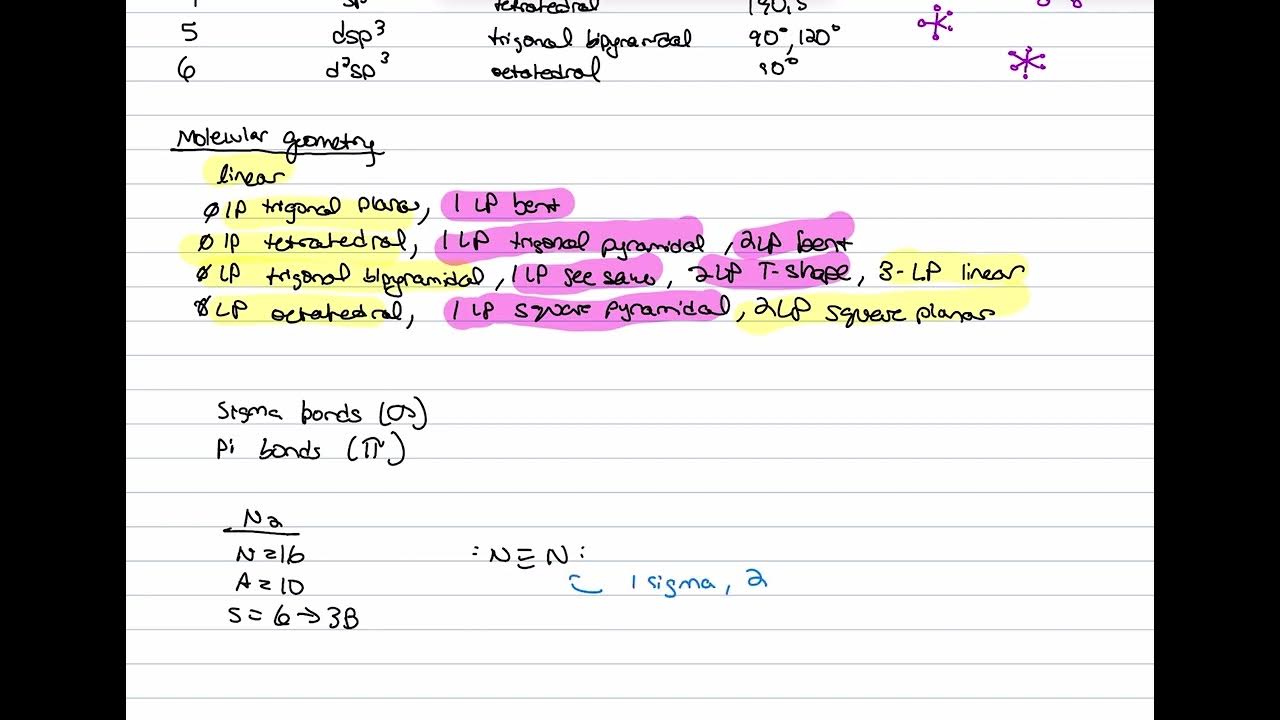 sp tetratedral
5 dsp³ trigonal bipyramidal 90°, 120°
6 d²sp³ octatedral 90°
Molecular geometry
linear
0 LP trigonal planar, 1 LP bent
0 LP tetratedral, 1 LP trigonal pyramidal, 2LP bent
0 LP trigonal bipyramidal, 1 LP see saw, 2LP T-shape, 3-LP linear
0 LP octatedral, 1 LP square pyramidal, 2LP square planar
Sigma bonds (σ)
Pi bonds (π)
N2
N=16 :N≡N:
A=10 1 sigma, 2
S=6→3B